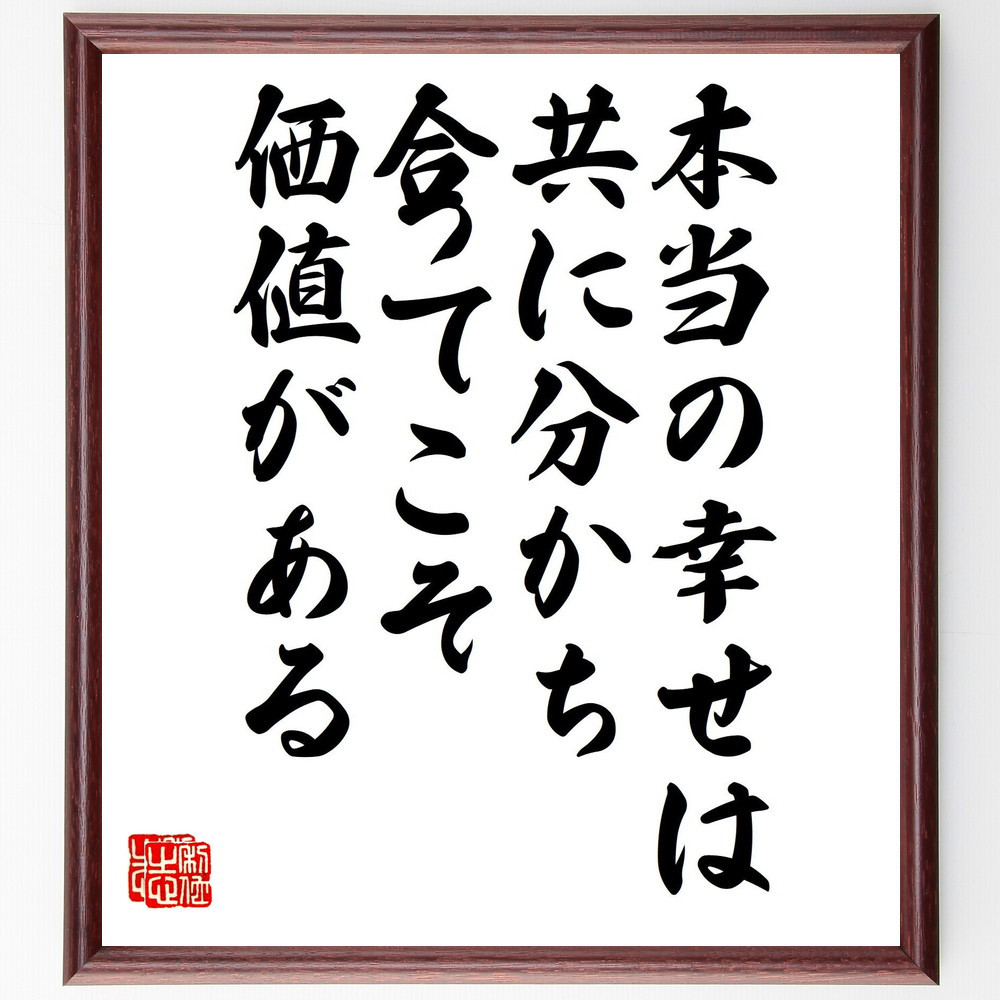 本当の幸せは
共に分かち
合ってこそ
価値がある